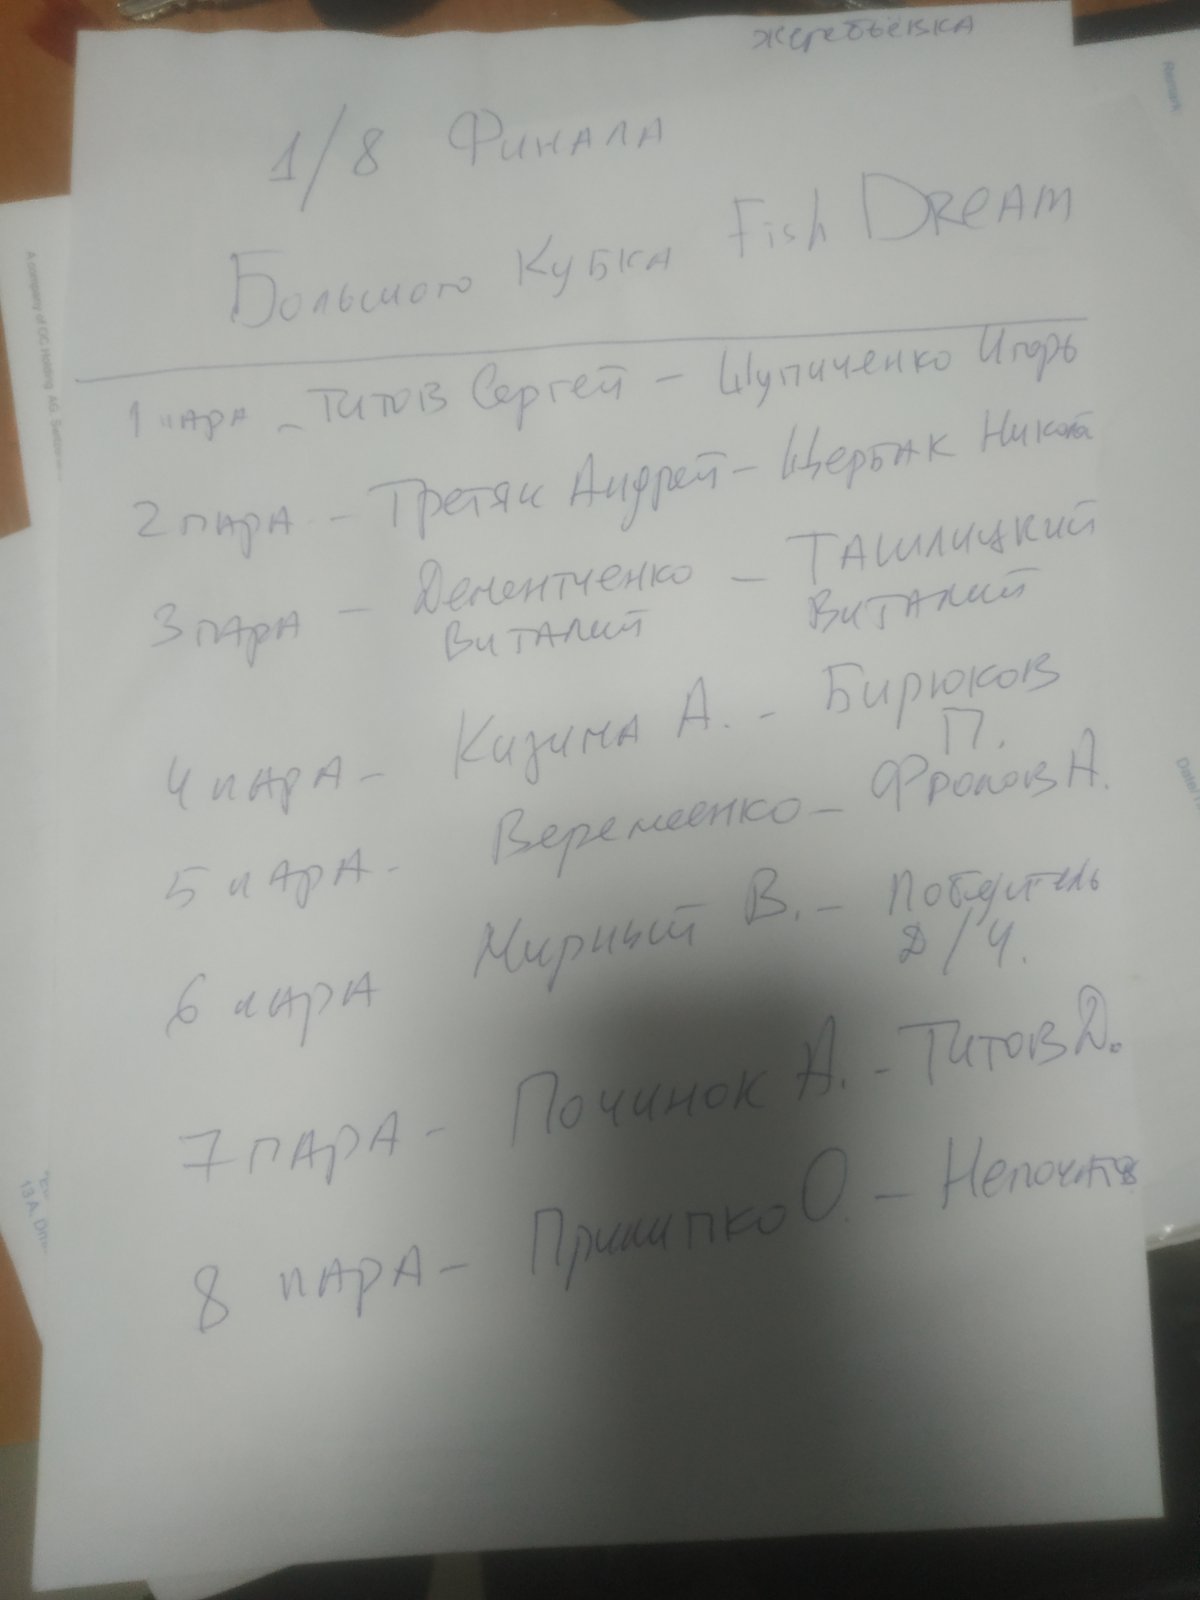 жеребьёвка
1/8 Финала
Большого Кубка Fish Dream
1 пара - Титов Сергей - Шупиченко Игорь
2 пара - Третяк Андрей - Щербак Николай
3 пара - Дементченко - Ташлицкий
Виталий Виталий
4 пара - Кизима А. - Бирюков
П.
5 пара - Веремеенко - Фролов А.
6 пара Мирный В. - Победитель
Д/Ч.
7 пара - Починок А. - Титов Д.
8 пара - Прилипко О. -
A company of OC Holding AG,
Remark
Date/
13 A,